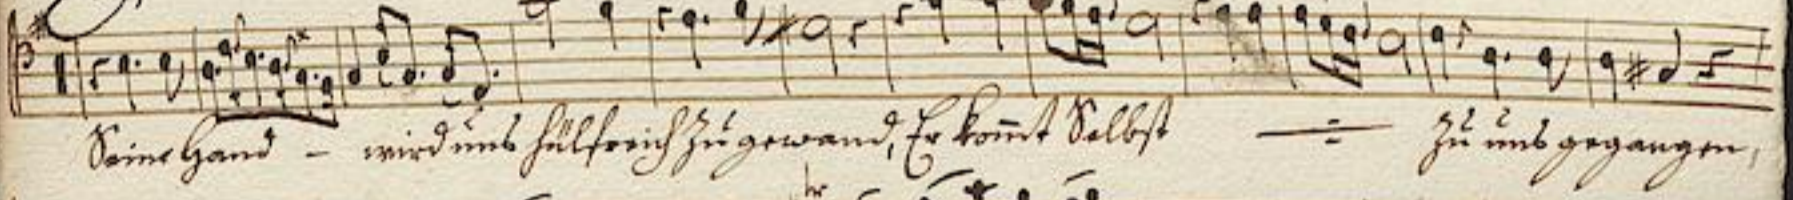 Seine Hand – wird uns hülfreich zu gewand, Er kom̄t Selbst ÷ zu uns gegangen,
tr